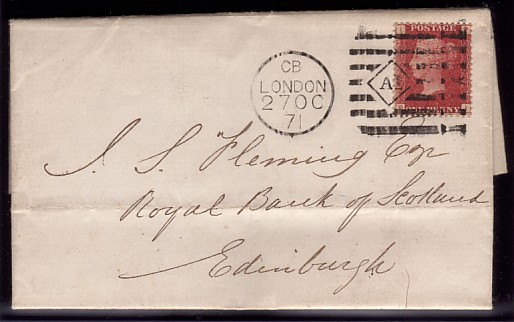 POSTAGE
CB
LONDON
27 OC
71
PENNY
J. S. Fleming Esqr
Royal Bank of Scotland
Edinburgh